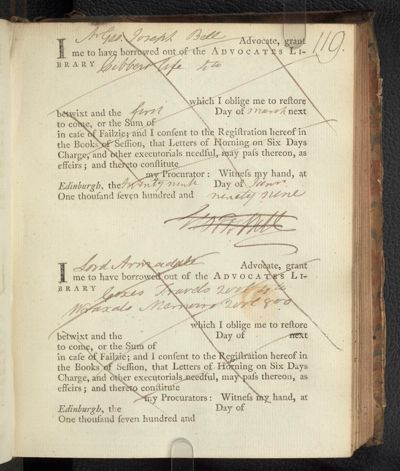 119.
I Mr Geo. Joseph Bell Advocate, grant
me to have borrowed out of the ADVOCATES LI-
BRARY Gibbons life 4to
which I oblige me to restore
betwixt and the first Day of March next
to come, or the Sum of
in case of Failzie; and I consent to the Registration hereof in
the Books of Session, that Letters of Horning on Six Days
Charge, and other executorials needful, may pass thereon, as
effeirs; and thereto constitute
my Procurator: Witness my hand, at
Edinburgh, the twenty ninth Day of Janry
One thousand seven hundred and ninety nine
Bell
I Lord Armadale Advocate, grant
me to have borrowed out of the ADVOCATES LI-
BRARY Coxes Travels 4to
Wraxals Memoirs 2 vol 8vo
which I oblige me to restore
betwixt and the Day of next
to come, or the Sum of
in case of Failzie; and I consent to the Registration hereof in
the Books of Session, that Letters of Horning on Six Days
Charge, and other executorials needful, may pass thereon, as
effeirs; and thereto constitute
my Procurators: Witness my hand, at
Edinburgh, the Day of
One thousand seven hundred and